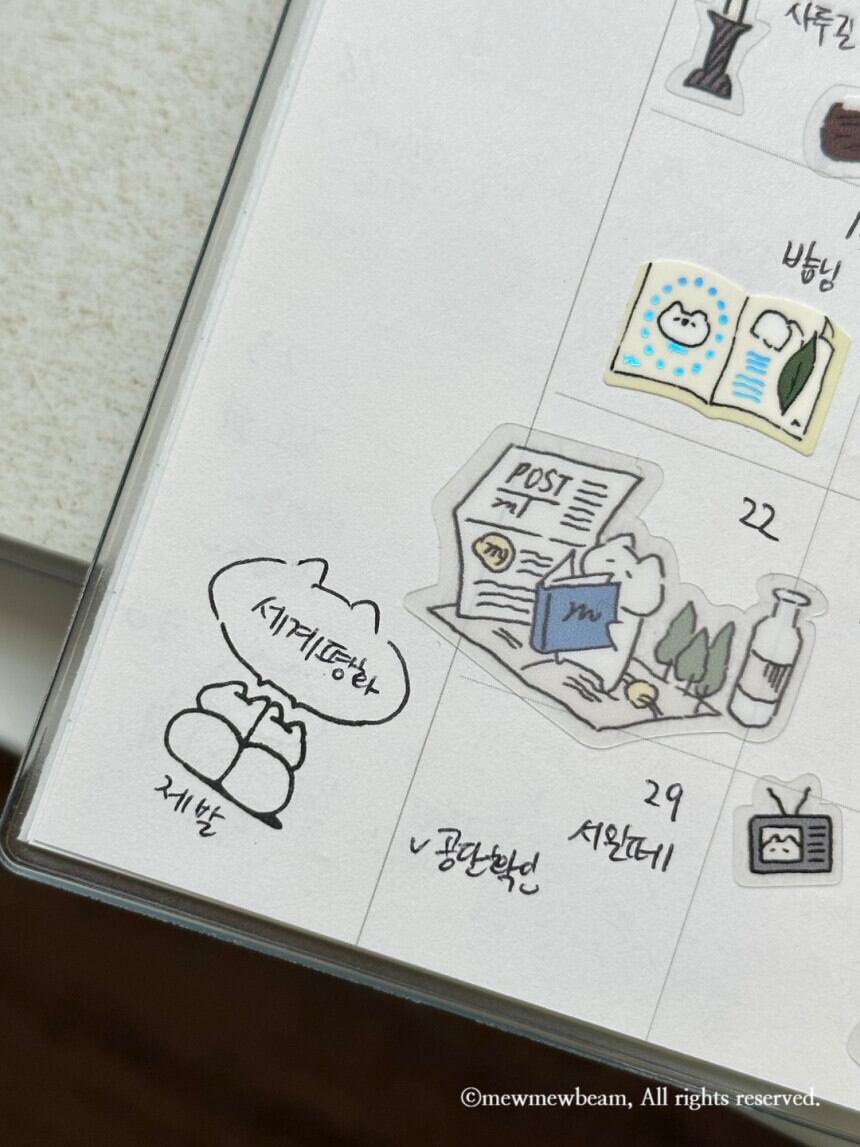 사루길
뱝님
POST
22
세계평화
제발
29
서완떼
✓공단확인
©mewmewbeam, All rights reserved.